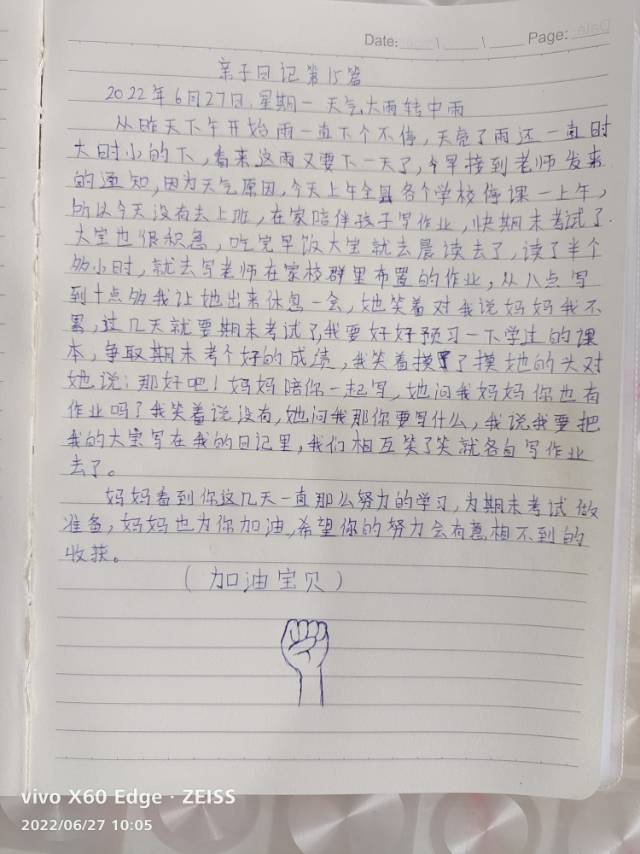 Date: \ \ Page:
亲子日记第15篇
2022年6月27日.星期一 天气大雨转中雨
从昨天下午开始雨一直下个不停,天亮了雨还一直时
大时小的下,看来这雨又要下一天了,今早接到老师发来
的通知,因为天气原因,今天上午全县各个学校停课一上午,
所以今天没有去上班,在家陪伴孩子写作业,快期末考试了.
大宝也很积急,吃完早饭大宝就去晨读去了,读了半个
多小时,就去写老师在家校群里布置的作业,从八点写
到十点多我让她出来休息一会,她笑着对我说妈妈我不
累,过几天就要期末考试了,我要好好预习一下学过的课
本,争取期末考个好的成绩,我笑着摸了摸她的头对
她说:那好吧!妈妈陪你一起写,她问我妈妈你也有
作业吗了我笑着说没有,她问我那你要写什么,我说我要把
我的大宝写在我的日记里,我们相互笑了笑就各自写作业
去了。
妈妈看到你这几天一直那么努力的学习,为期末考试做
准备,妈妈也为你加油,希望你的努力会有意相不到的
收获。
(加油宝贝)
vivo X60 Edge · ZEISS
2022/06/27 10:05